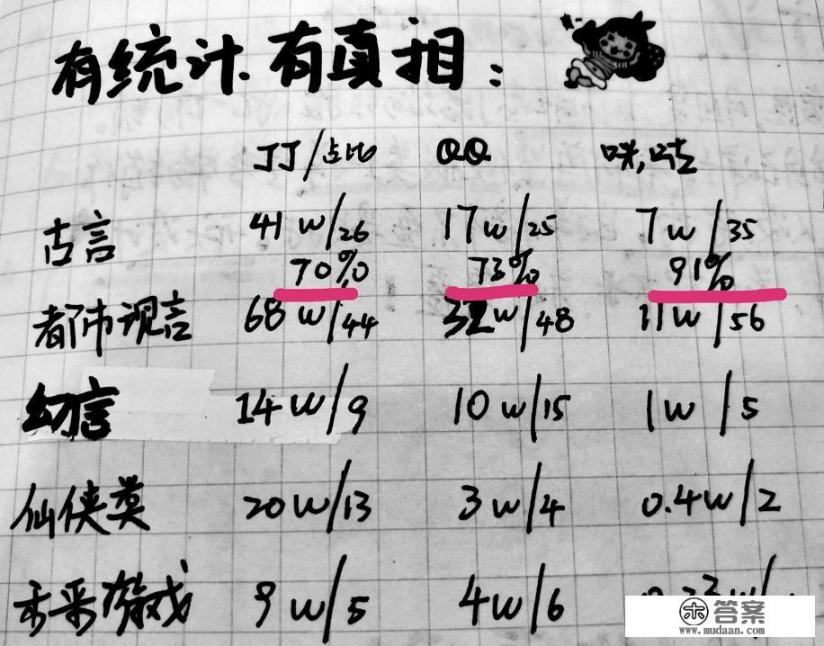 有统计.有真相:
JJ/占比 QQ 咪,咕
古言 41w/26 17w/25 7w/35
70% 73% 91%
都市现言 68w/44 32w/48 11w/56
幻言 14w/9 10w/15 1w/5
仙侠类 20w/13 3w/4 0.4w/2
未来游戏 9w/5 4w/6
答案
www.mudaan.com